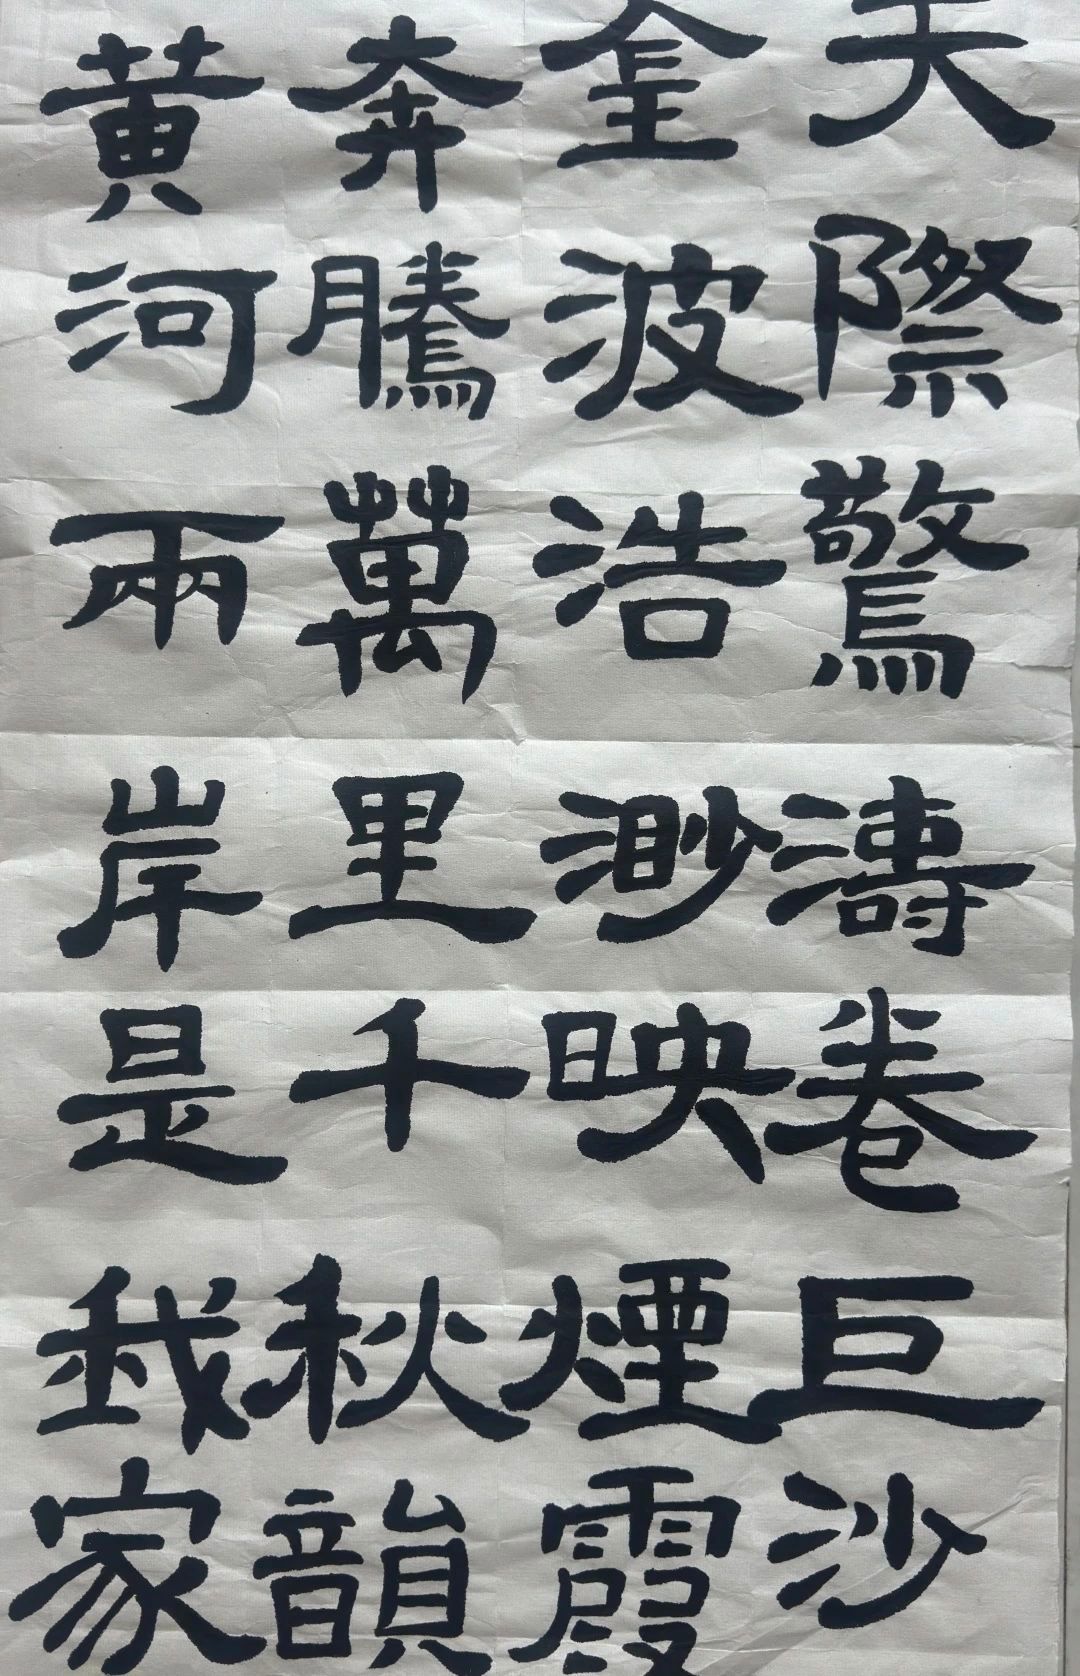 天際驚濤卷巨沙
金波浩渺映煙霞
奔騰萬里千秋韻
黃河兩岸是我家